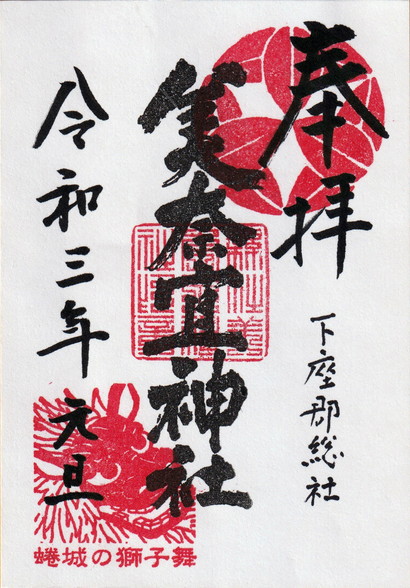 奉拝
下座郡総社
美奈宜神社
令和三年元旦
蜷城の獅子舞